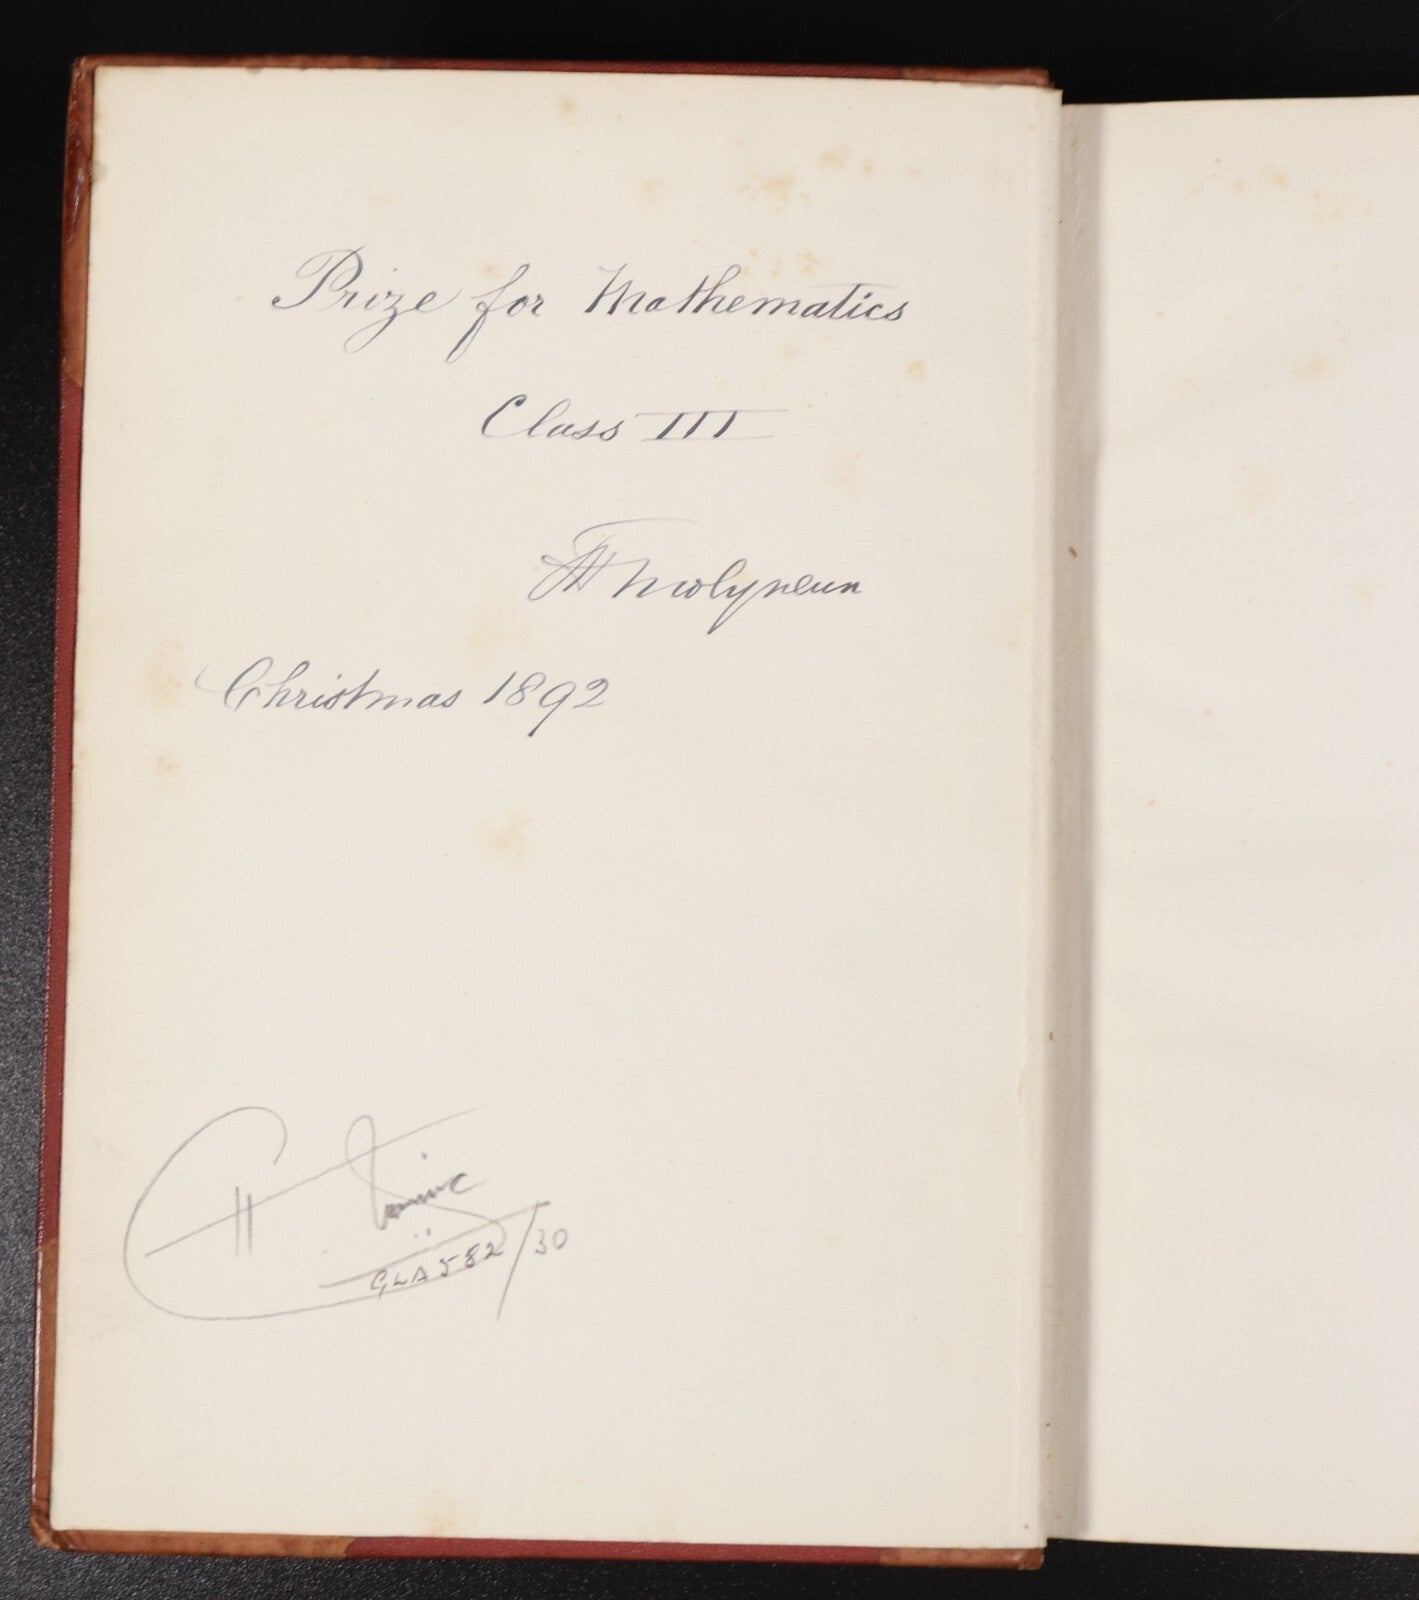 Prize for Mathematics
Class III
Molyneux
Christmas 1892
GLA 582/30